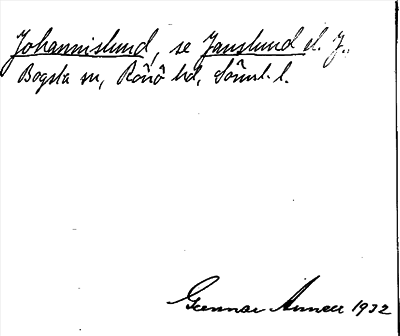 Johannislund, se Janslund el. J.,
Bogsta sn, Rönö hd, Söml. l.
Gunnar Annell 1932